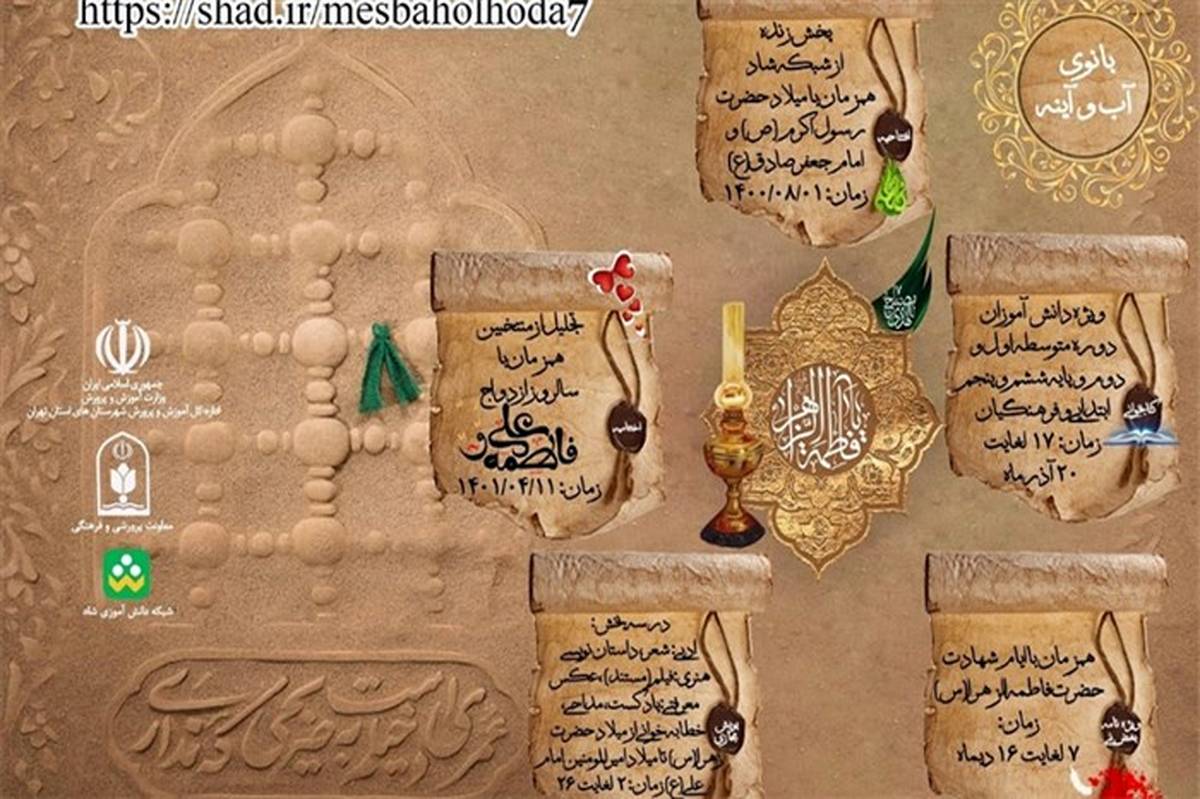 https://shad.ir/mesbaholhoda7
بانوی
آب و آینه
پخش زنده
از شبکه شاد
همزمان با میلاد حضرت
رسول اکرم (ص) و
امام جعفر صادق (ع)
زمان: ۱۴۰۰/۰۸/۰۱
افتتاحیه
ویژه دانش آموزان
دوره متوسطه اول و
دوم و پایه ششم و پنجم
ابتدایی و فرهنگیان
زمان: ۱۷ لغایت
۲۰ آذر ماه
کتابخوانی
تجلیل از منتخبین
همزمان با
سالروز ازدواج
علی و
فاطمه
زمان: ۱۴۰۱/۰۴/۱۱
اختتامیه
یا فاطمة الزهرا
جمهوری اسلامی ایران
وزارت آموزش و پرورش
اداره کل آموزش و پرورش شهرستان های استان تهران
معاونت پرورشی و فرهنگی
شبکه دانش آموزی شاد
همزمان با ایام شهادت
حضرت فاطمه الزهرا (س)
زمان:
۷ لغایت ۱۶ دیماه
در سه بخش:
ادبی: شعر، داستان نویسی
هنری: فیلم (مستند)، عکس
معرفتی: پادکست، مداحی،
خطابه خوانی از میلاد حضرت
زهرا (س) تا میلاد امیرالمومنین امام
علی (ع) زمان: ۲ لغایت ۲۶